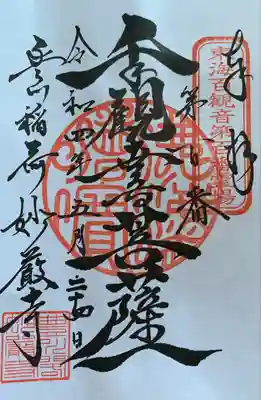 奉拝
東海百観音第百番霊場
第百番
千手観世音菩薩
令和四年五月二十四日
豊川稲荷妙厳寺